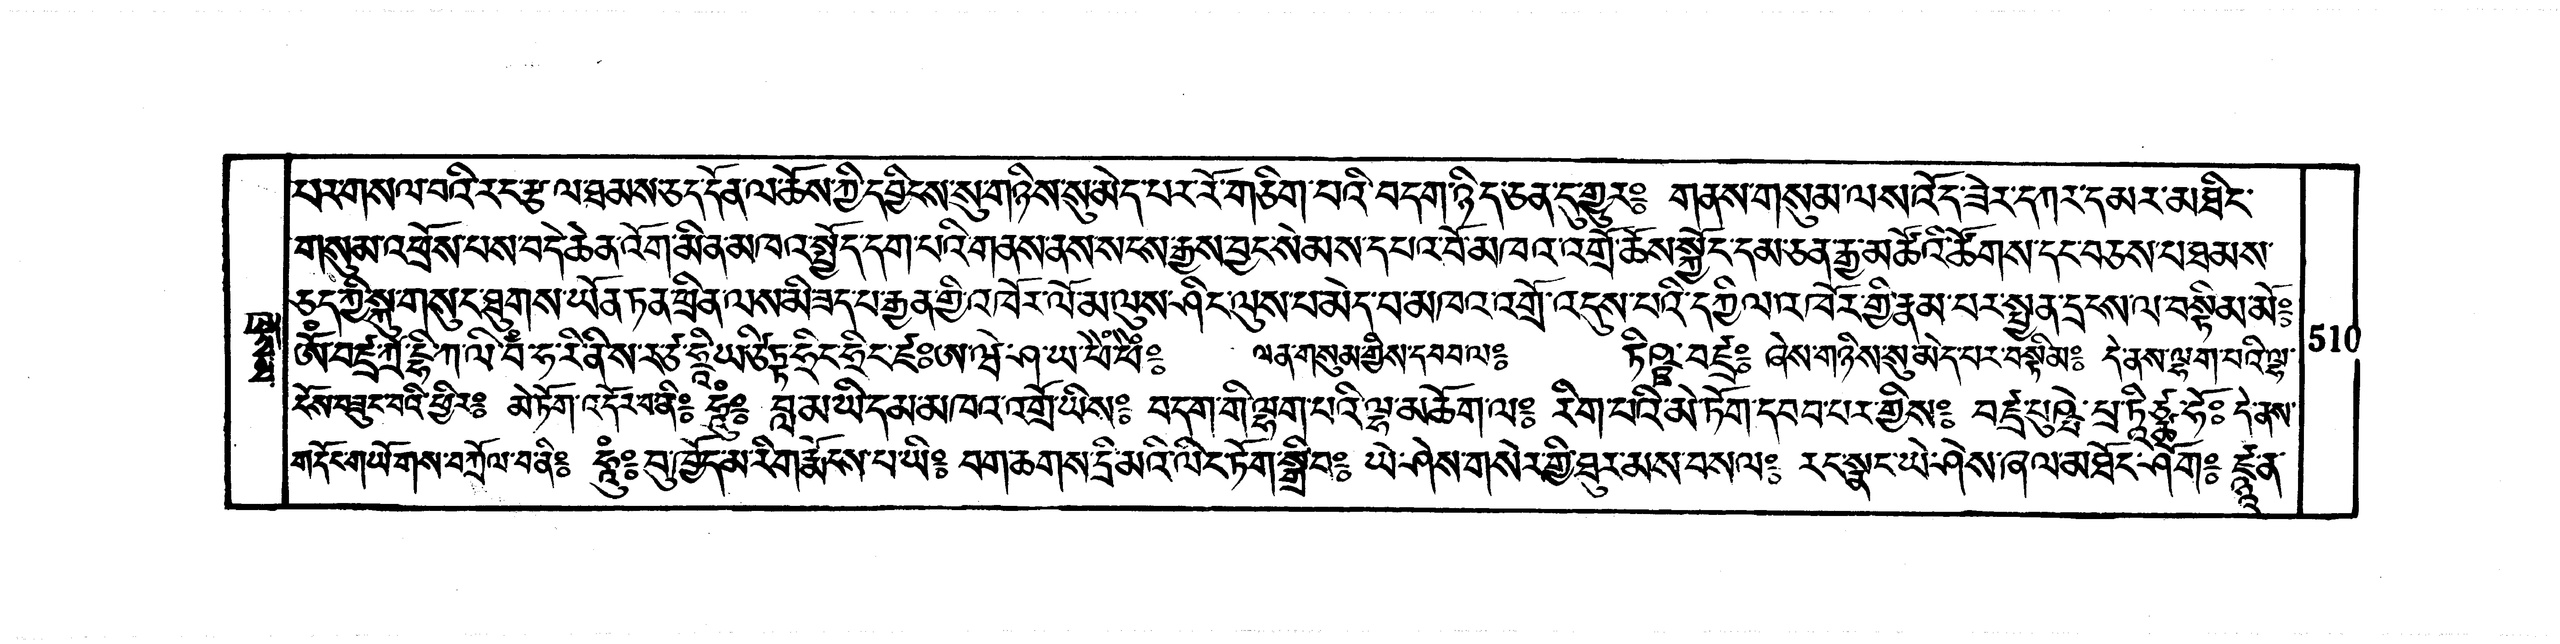 པར་གསལ་བའི་རང་རྩལ་ཐམས་ཅད་དོན་ལ་ཆོས་ཀྱི་དབྱིངས་སུ་གཉིས་སུ་མེད་པར་རོ་གཅིག་པའི་བདག་ཉིད་ཅན་དུ་གྱུར༔ གནས་གསུམ་ལས་འོད་ཟེར་དཀར་དམར་མཐིང་
གསུམ་འཕྲོས་པས་བདེ་ཆེན་འོག་མིན་མཁའ་སྤྱོད་དག་པའི་གནས་ནས་སངས་རྒྱས་བྱང་སེམས་དཔའ་བོ་མཁའ་འགྲོ་ཆོས་སྐྱོང་དམ་ཅན་རྒྱ་མཚོའི་ཚོགས་དང་བཅས་པ་ཐམས་
ཅད་ཀྱི་སྐུ་གསུང་ཐུགས་ཡོན་ཏན་ཕྲིན་ལས་མི་ཟད་པ་རྒྱན་གྱི་འཁོར་ལོ་མ་ལུས་ཤིང་ལུས་པ་མེད་པ་མཁའ་འགྲོ་འདུས་པའི་དཀྱིལ་འཁོར་གྱི་རྣམ་པར་སྤྱན་དྲངས་ལ་བསྟིམ་མོ༔
ཨོཾ་བཛྲ་ཀྲོ་དྷི་ཀ་ལི་བཾ་ཧ་རི་ནི་ས་ར་ཙ་ཧྲི་ཡ་ཙིཏྟ་ཧྲིང་ཧྲིང་ཛཿ༔ ཨ་ཝེ་ཤ་ཡ་ཕཻཾ་ཕཻཾ༔ ལན་གསུམ་གྱིས་དབབ་ལ༔ ཏིཥྛ་བཛྲ༔ ཞེས་གཉིས་སུ་མེད་པར་བསྟིམ༔ དེ་ནས་ལྷག་པའི་ལྷ་
ངོས་བཟུང་བའི་ཕྱིར༔ མེ་ཏོག་འདོར་བ་ནི༔ ཧཱུྃ༔ བླ་མ་ཡི་དམ་མཁའ་འགྲོ་ཡིས༔ བདག་གི་ལྷག་པའི་ལྷ་མཆོག་ལ༔ རིག་པའི་མེ་ཏོག་དབབ་པར་གྱིས༔ བཛྲ་པུཥྤེ་པྲ་ཏཱིཙྪ་ཧོ༔ དེ་ནས་
གདོང་གཡོགས་བཀྲོལ་བ་ནི༔ ཧཱུྃ༔ བུ་ཁྱོད་མ་རིག་རྨོངས་པ་ཡི༔ བག་ཆགས་དྲི་མའི་ལིང་ཏོག་སྒྲིབ༔ ཡེ་ཤེས་གསེར་གྱི་ཐུར་མས་བསལ༔ རང་སྣང་ཡེ་ཤེས་ཞལ་མཐོང་ཤོག༔ ཛྙཱ་ན་
510